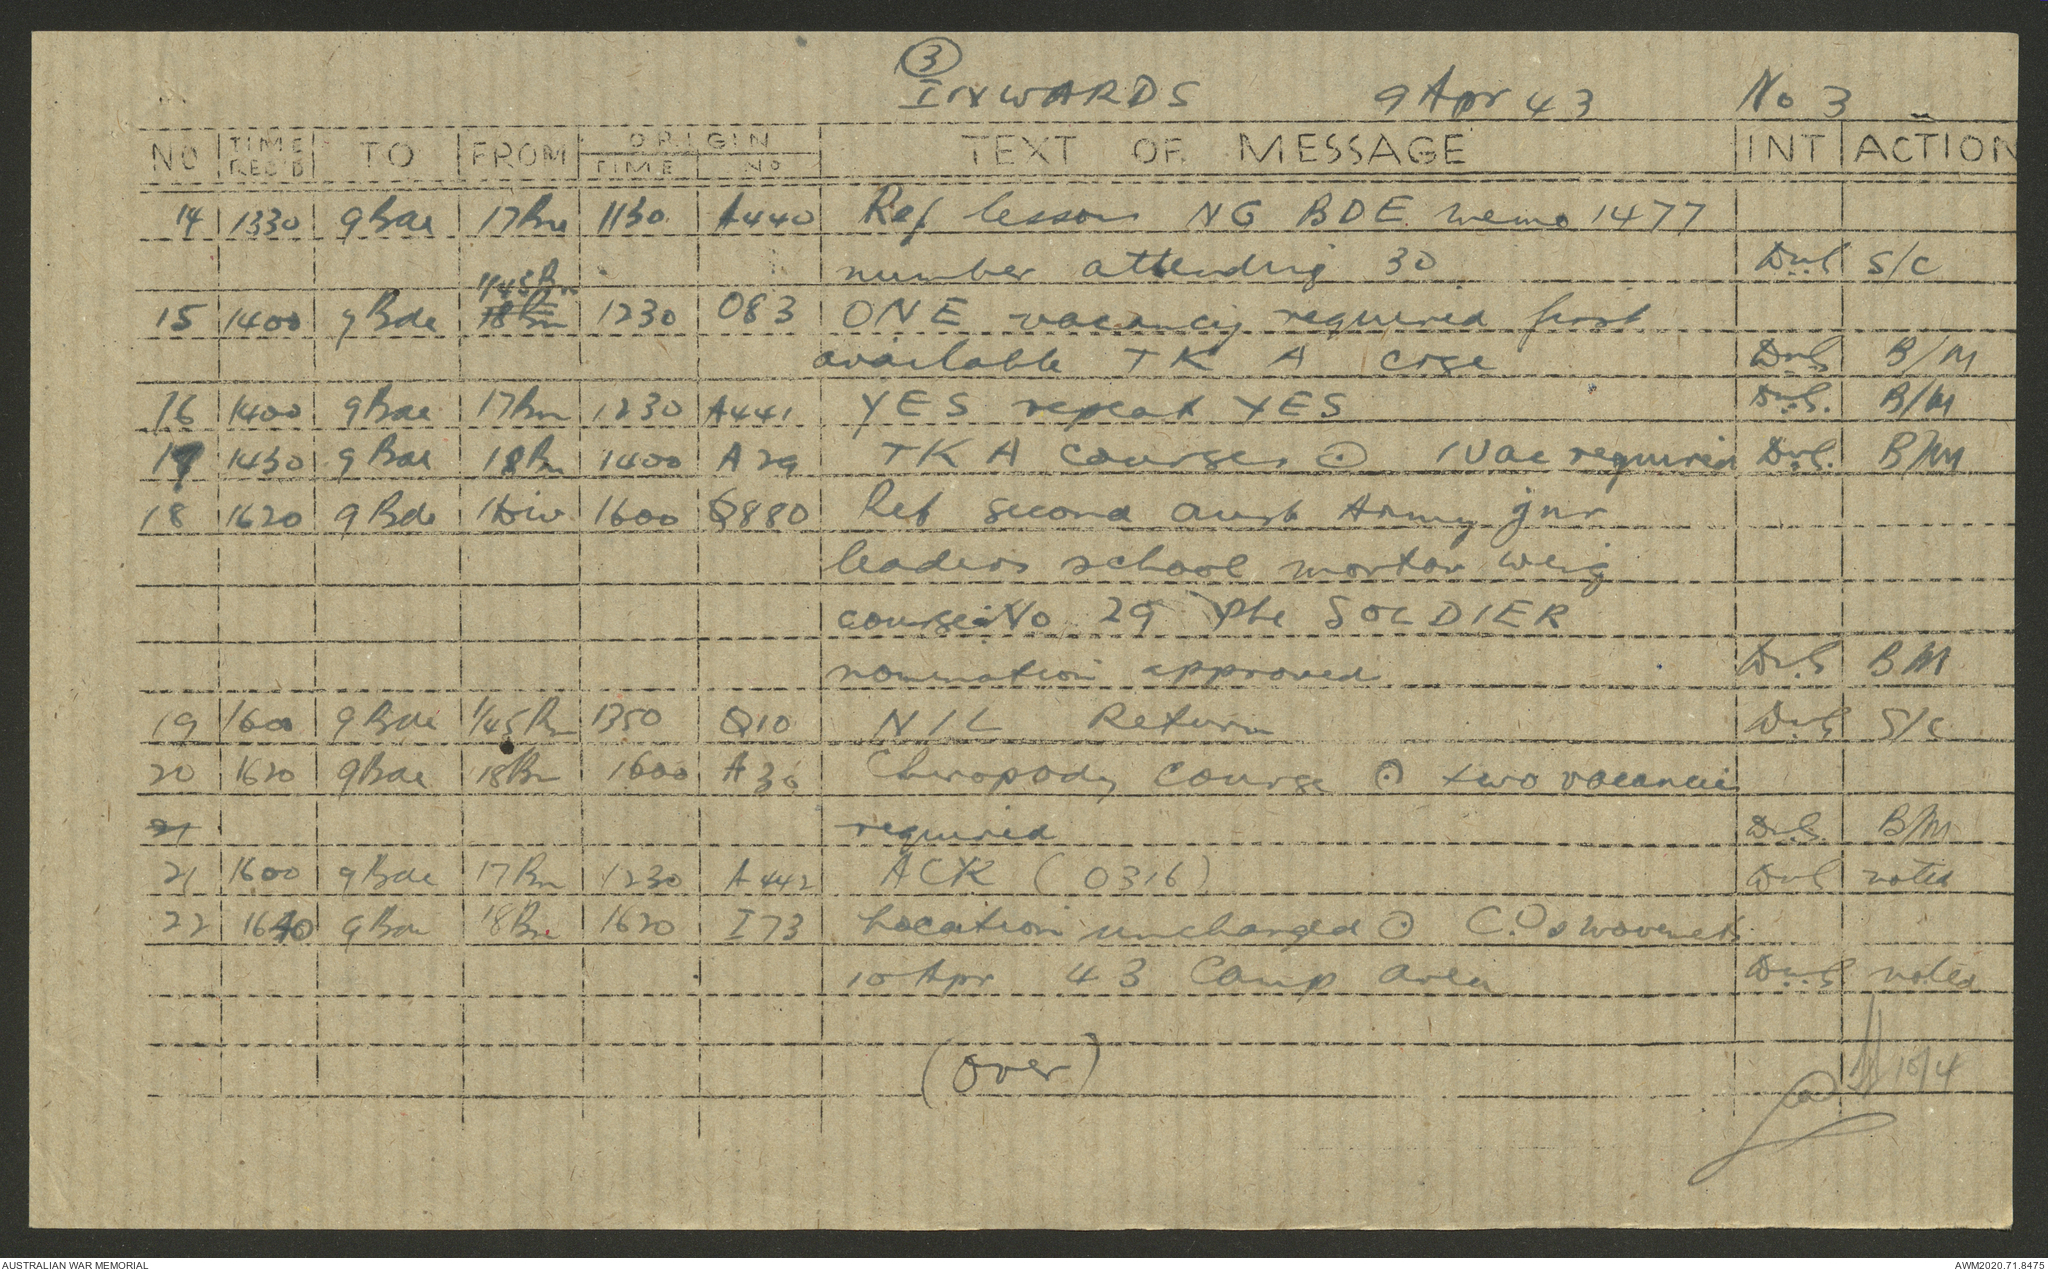 3
INWARDS 9 Apr 43 No 3
NO TIME REC'D TO FROM ORIGIN TIME NO TEXT OF MESSAGE INT ACTION
14 1330 9 Bde 17 Bn 1130 A440 Ref lesson NG BDE memo 1477
number attending 30 S/C
1/45 Bn
15 1400 9 Bde 18 Bn 1230 O83 ONE vacancy required first
available TK A crse B/M
16 1400 9 Bde 17 Bn 1230 A441 YES repeat YES B/M
17 1430 9 Bde 18 Bn 1400 A29 TKA courses ⊙ 1 Vac required B/M
18 1620 9 Bde 1 Div 1600 Q880 Ref second aust Army jnr
leaders school mortar wing
course No 29 Pte SOLDIER
nomination approved BM
19 1600 9 Bde 1/45 Bn 1350 Q10 NIL Return S/C
20 1620 9 Bde 18 Bn 1600 A30 Chiropody course ⊙ two vacancies
21 required B/M
21 1600 9 Bde 17 Bn 1230 A442 ACK (0316) noted
22 1640 9 Bn 18 Bn 1620 I73 Location unchanged ⊙ C.Os movements
10 Apr 43 Camp area noted
(over)
10/4
AUSTRALIAN WAR MEMORIAL AWM2020.71.8475